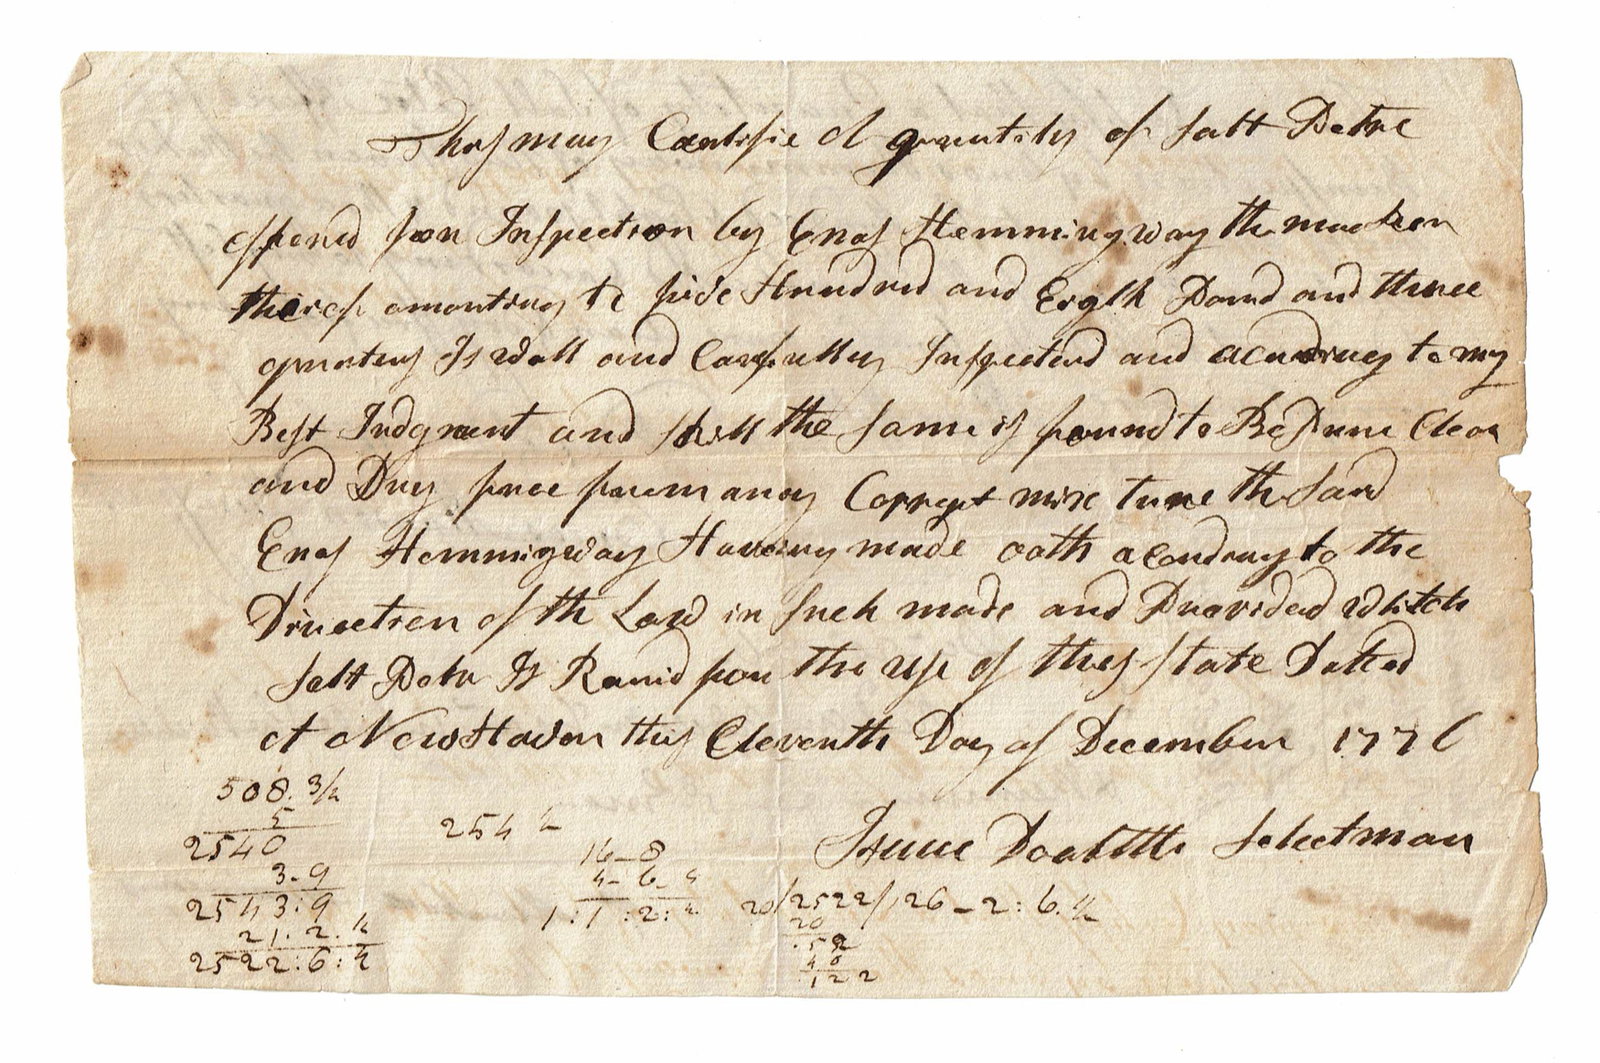 Thes may Certifie A quantity of Salt Petre
offered for Inspection by Enos Hemmingway the maker
thereof amonting to five Hundred and Eight Pound and three
quarters Is Well and Carfully Inspected and acording to my
Best Judgment and skill the same is found to Be Pure Clear
and Dry free from any Corrupt mixe ture the Said
Enos Hemmingway Having made oath acording to the
Direction of the Law in Such made and Provided Which
Salt Petre Is Recivd for the use of thes State Dated
At New Haven thes Eleventh Day of December 1776
Isaac Doolittle Selectman
508. 3/4
5
2540
3-9
2543:9
21:2.4
2522:6:4
254
16-8
4-6-4
1:1:2:
20/2522/126-2:6.
20
52
40
122